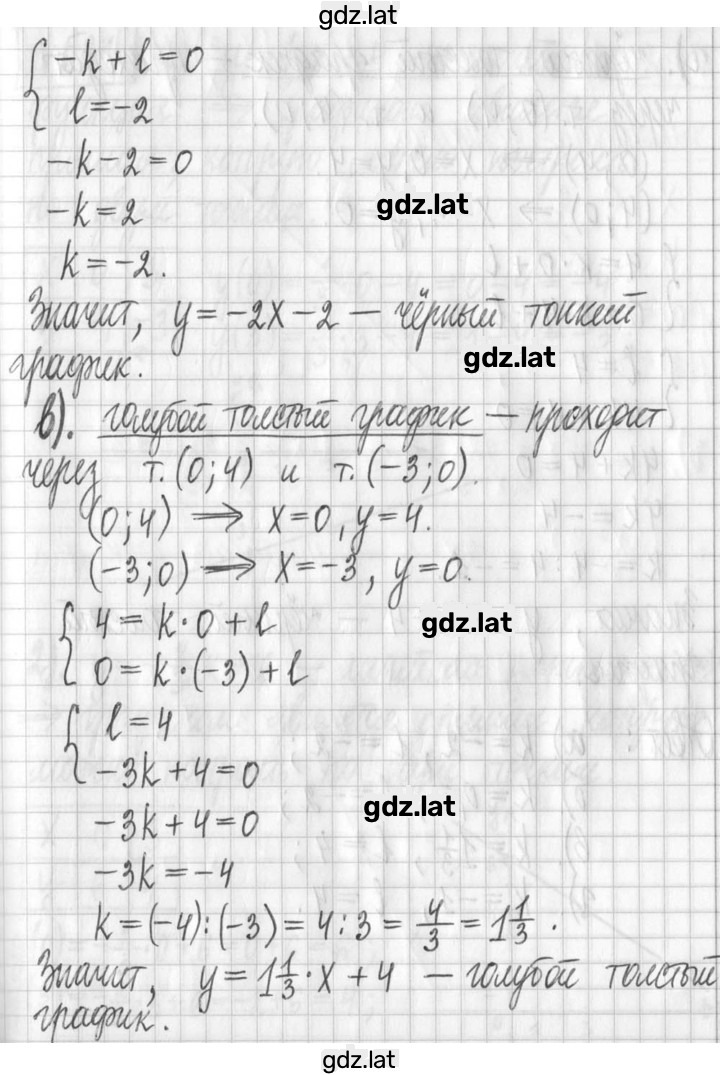 gdz.lat
{ -k + l = 0
l = -2
-k - 2 = 0
-k = 2
gdz.lat
k = -2.
Значит, y = -2x - 2 — чёрный тонкий
график.
gdz.lat
в). голубой толстый график — проходит
через т. (0; 4) и т. (-3; 0).
(0; 4) ⟹ x = 0, y = 4.
(-3; 0) ⟹ x = -3, y = 0.
{ 4 = k · 0 + l
gdz.lat
0 = k · (-3) + l
{ l = 4
-3k + 4 = 0
-3k + 4 = 0
gdz.lat
-3k = -4
k = (-4) : (-3) = 4 : 3 = 4/3 = 1 1/3.
Значит, y = 1 1/3 · x + 4 — голубой толстый
график.
gdz.lat